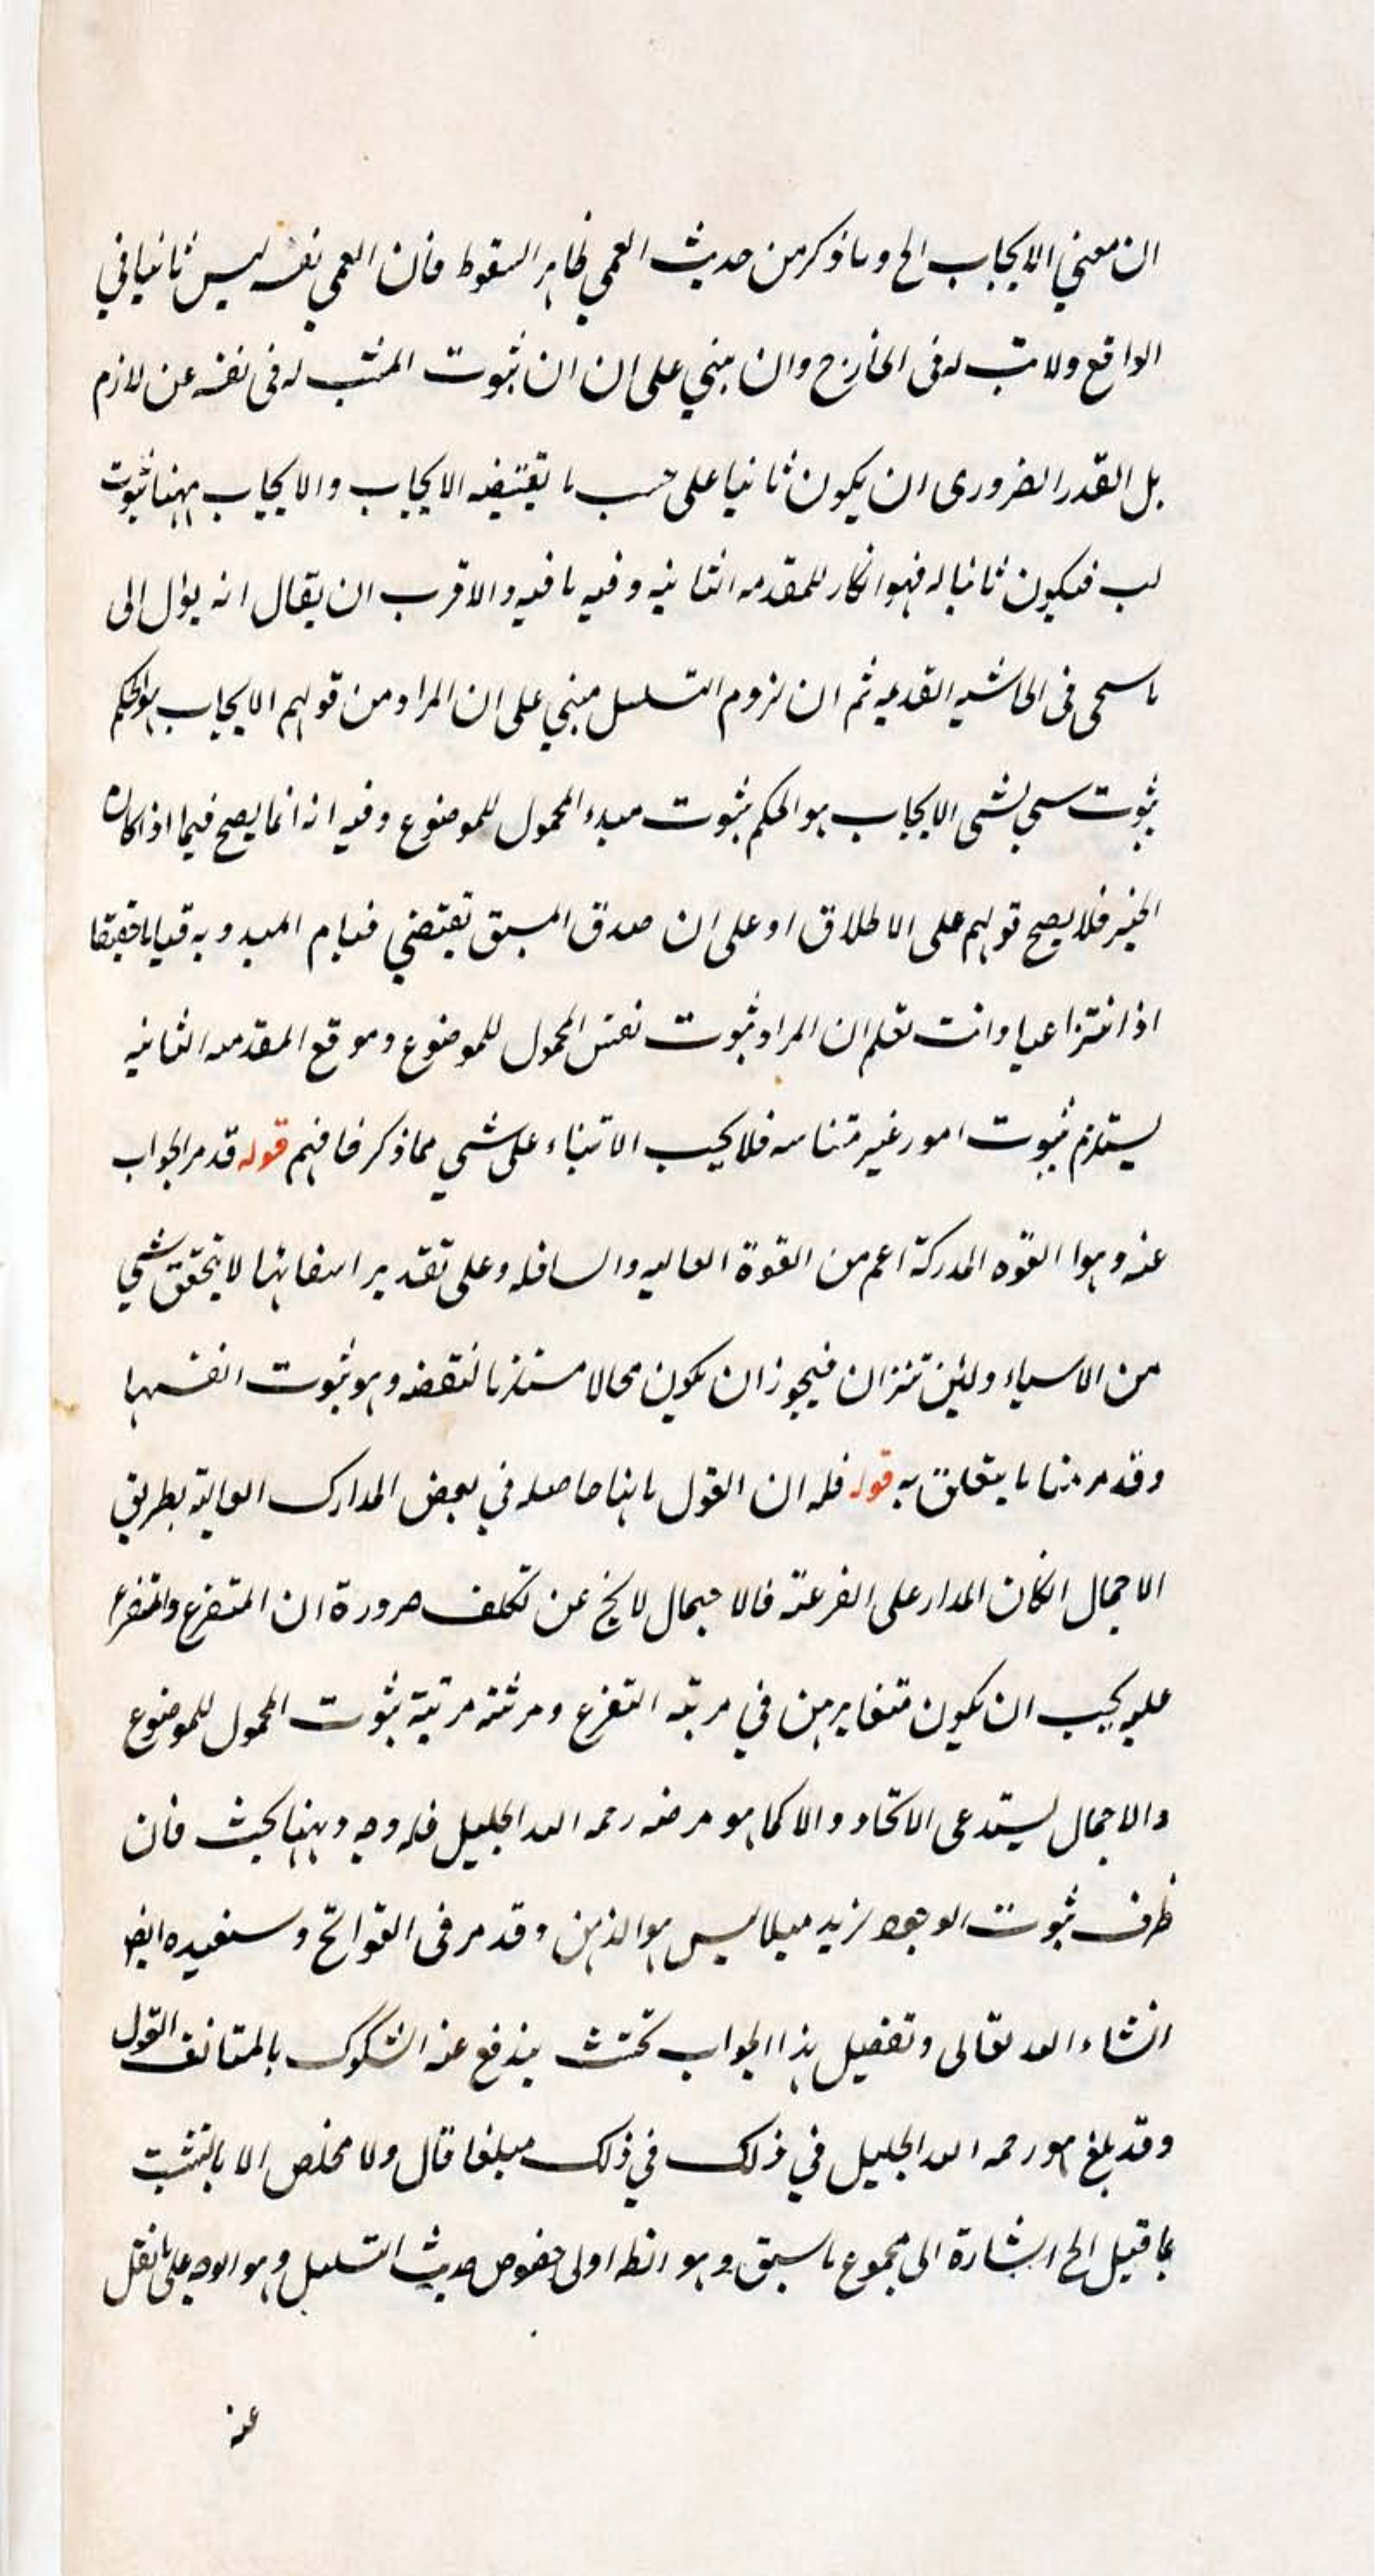 ان معنى الايجاب الخ وما ذكر من حديث العمى ظاهر السقوط فان العمى نفسه ليس ثابتا في
الواقع ولا ثبت له في الخارج وان مبني على ان ان ثبوت المثبت له في نفسه عن لازم
بل القدر الضروري ان يكون ثابتا على حسب ما تقتضيه الايجاب والايجاب ههنا ثبوت
لب فيكون ثابتا له فهو انكار للمقدمه الثانيه وفيه ما فيه والاقرب ان يقال انه يؤل الى
ما سيجي في الحاشيه القديمه ثم ان لزوم التسلسل مبني على ان المراد من قولهم الايجاب هو الحكم
ثبوت شي لشي الايجاب هو الحكم بثبوت مبدء المحمول للموضوع وفيه انه انما يصح فيما اذا كان
الخير فلا يصح قولهم على الاطلاق او على ان صدق المشتق تقتضي قيام المبدء به قياما حقيقا
اذ انتزاعيا وانت تعلم ان المراد ثبوت نفس المحمول للموضوع وموقع المقدمه الثانيه
يستلزم ثبوت امور غير متناهيه فلا يجب الابتناء على شي مما ذكر فافهم قوله قد مر الجواب
عنه وهو القوه المدركة اعم من القوة العاليه والسافله وعلى تقدير انتفائها لا يتحقق شي
من الاشياء ولئن تنزلنا فيجوز ان يكون محالا مستلزما لنقضه وهو ثبوت انفسها
وقد مر منا ما يتعلق به قوله فله ان القول بانها حاصله في بعض المدارك العاليه بطريق
الاجمال الكان المدار على الفرعية فالاجمال لا يخ عن تكلف ضرورة ان المتفرع والمتفرع
عليه يجب ان يكون متغايرين في مرتبه التفرع ومرتبته مرتبة ثبوت المحمول للموضوع
والاجمال يستدعي الاتحاد والا كما هو مرضه رحمه الله الجليل فله وجه وههنا بحث فان
ظرف ثبوت الوجود لزيد مثلا ليس هو الذهن وقد مر في الفواتح وسنعيده ايضا
انشاء الله تعالى وتفصيل هذا الجواب بحيث يندفع عنه الشكوك بالمتانف القول
وقد بلغ هو رحمه الله الجليل في ذلك في ذلك مبلغا قال ولا مخلص الا بالتشبث
بما قيل الخ اشارة الى مجموع ما سبق وهو انظ اولى خصوص حديث التسلسل وهو الاوجه على ما نقل
عنه